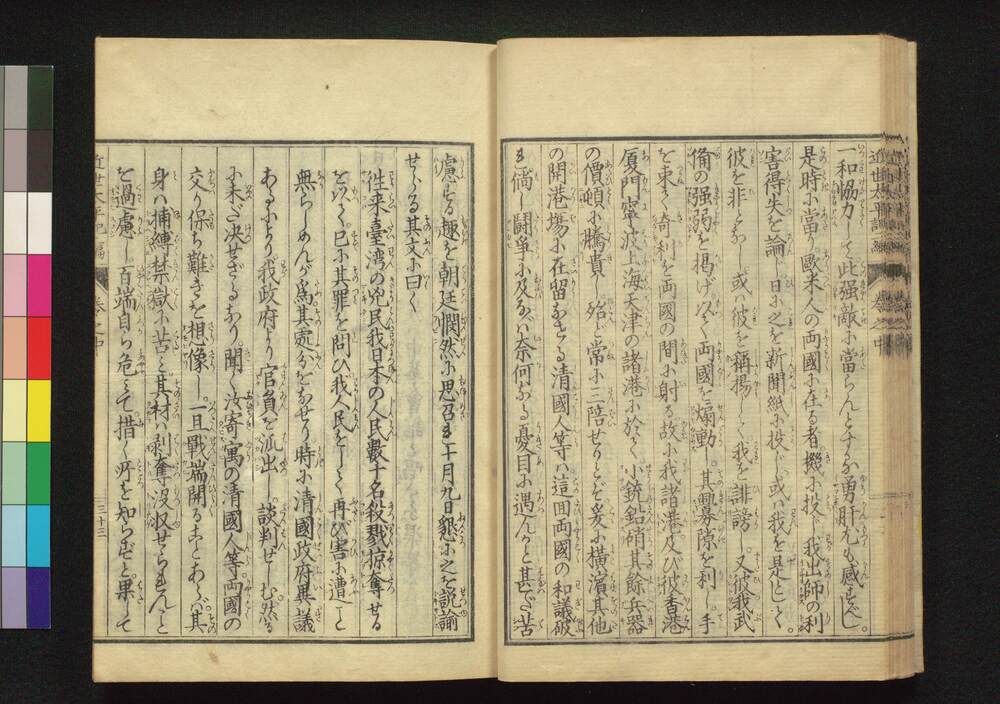 一和協力して此强敵に當らんとすが勇肝尤も感ずべし。
是時に當り歐米人の両國に在る者機に投じ我出師の利
害得失を論じ日に之を新聞紙に投じ或は我を是として
彼を非となし或は彼を稱揚して我を誹謗し又彼我武
備の强弱を掲げ以て両國を煽動し其釁隙を利し手
を束て奇利を両國の間に射る故に我諸港及び彼香港
厦門寧波上海天津の諸港に於て小銃鉛硝其餘兵器
の價頓に騰貴し殆ど常に三陪せりとぞ爰に横濱其他
の開港塲に在留なせる清國人等は這回両國の和議破
れ倘し鬪爭に及ばゞ奈何なる憂目に遇んかと甚だ苦
近世太平記二編 巻之中
慮する趣を朝廷憫然に思召れ十月九日懇に之を説諭
せらる其文に曰く
徃年臺湾の兇民我日本の人民數十名殺戮掠奪せる
を以て已に其罪を問ひ我人民をして再び害に遭こと
無らしめんが爲其處分をなせり時に清國政府異議
あるにより我政府より官員を派出し談判せしむ然る
に未だ決せざるなり聞く汝寄寓の清國人等両國の
交り保ち難きを想像し一旦戰端開ることあらば其
身は捕縛禁獄に苦み其材は剥奪没収せられんと
を過慮し百端自ら危みて措く所を知らずと果して
近世太平記二編 巻之中 三十三